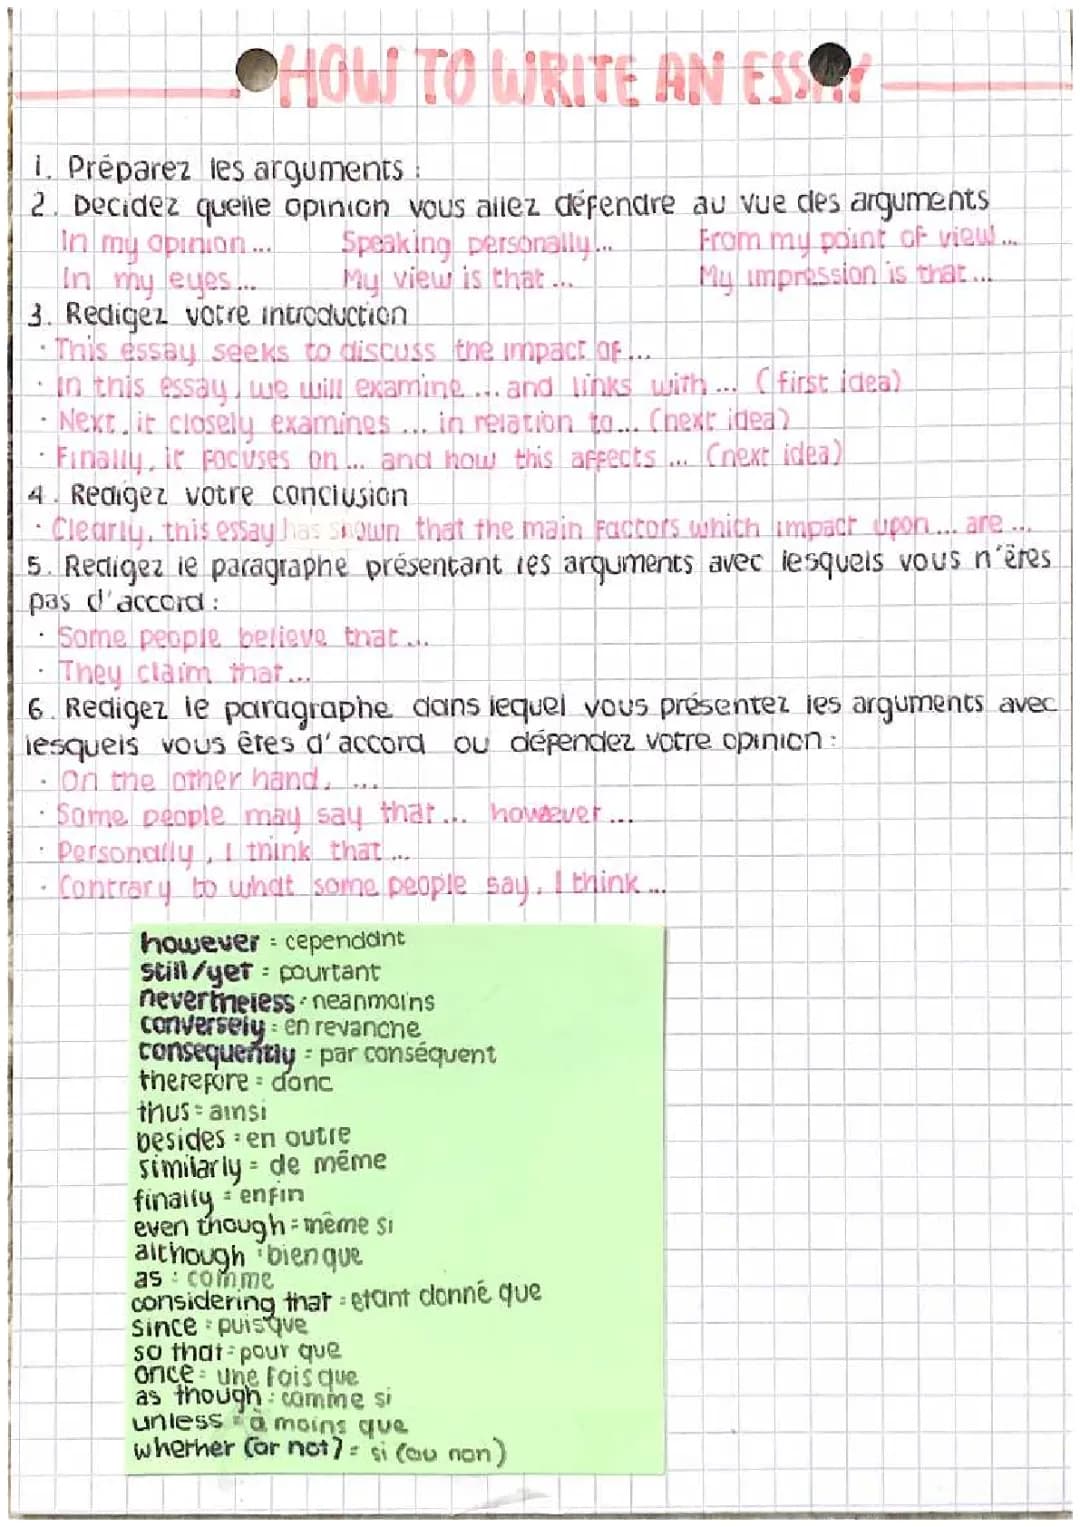 HOW TO WRITE AN ESSAY
1. Préparez les arguments :
2. Decidez quelle opinion vous allez défendre au vue des arguments
In my opinion... Speaking personally... From my point of view...
In my eyes... My view is that... My impression is that...
3. Redigez votre introduction
· This essay seeks to discuss the impact of...
· In this essay, we will examine ... and links with ... (first idea)
· Next, it closely examines ... in relation to... (next idea)
· Finally, it focuses on ... and how this affects ... (next idea)
4. Redigez votre conclusion
· Clearly, this essay has shown that the main factors which impact upon ... are ...
5. Redigez le paragraphe présentant les arguments avec lesquels vous n'êtes
pas d'accord :
· Some people believe that...
· They claim that...
6. Redigez le paragraphe dans lequel vous présentez les arguments avec
lesquels vous êtes d'accord ou défendez votre opinion :
· On the other hand, ...
· Some people may say that... however...
· Personally, I think that...
· Contrary to what some people say, I think ...
however : cependant
still/yet : pourtant
nevertheless : neanmoins
conversely : en revanche
consequently : par conséquent
therefore : donc
thus = ainsi
besides : en outre
similarly = de même
finally = enfin
even though = même si
although : bien que
as : comme
considering that : etant donné que
since : puisque
so that = pour que
once = une fois que
as though : comme si
unless = à moins que
whether (or not) = si (ou non)